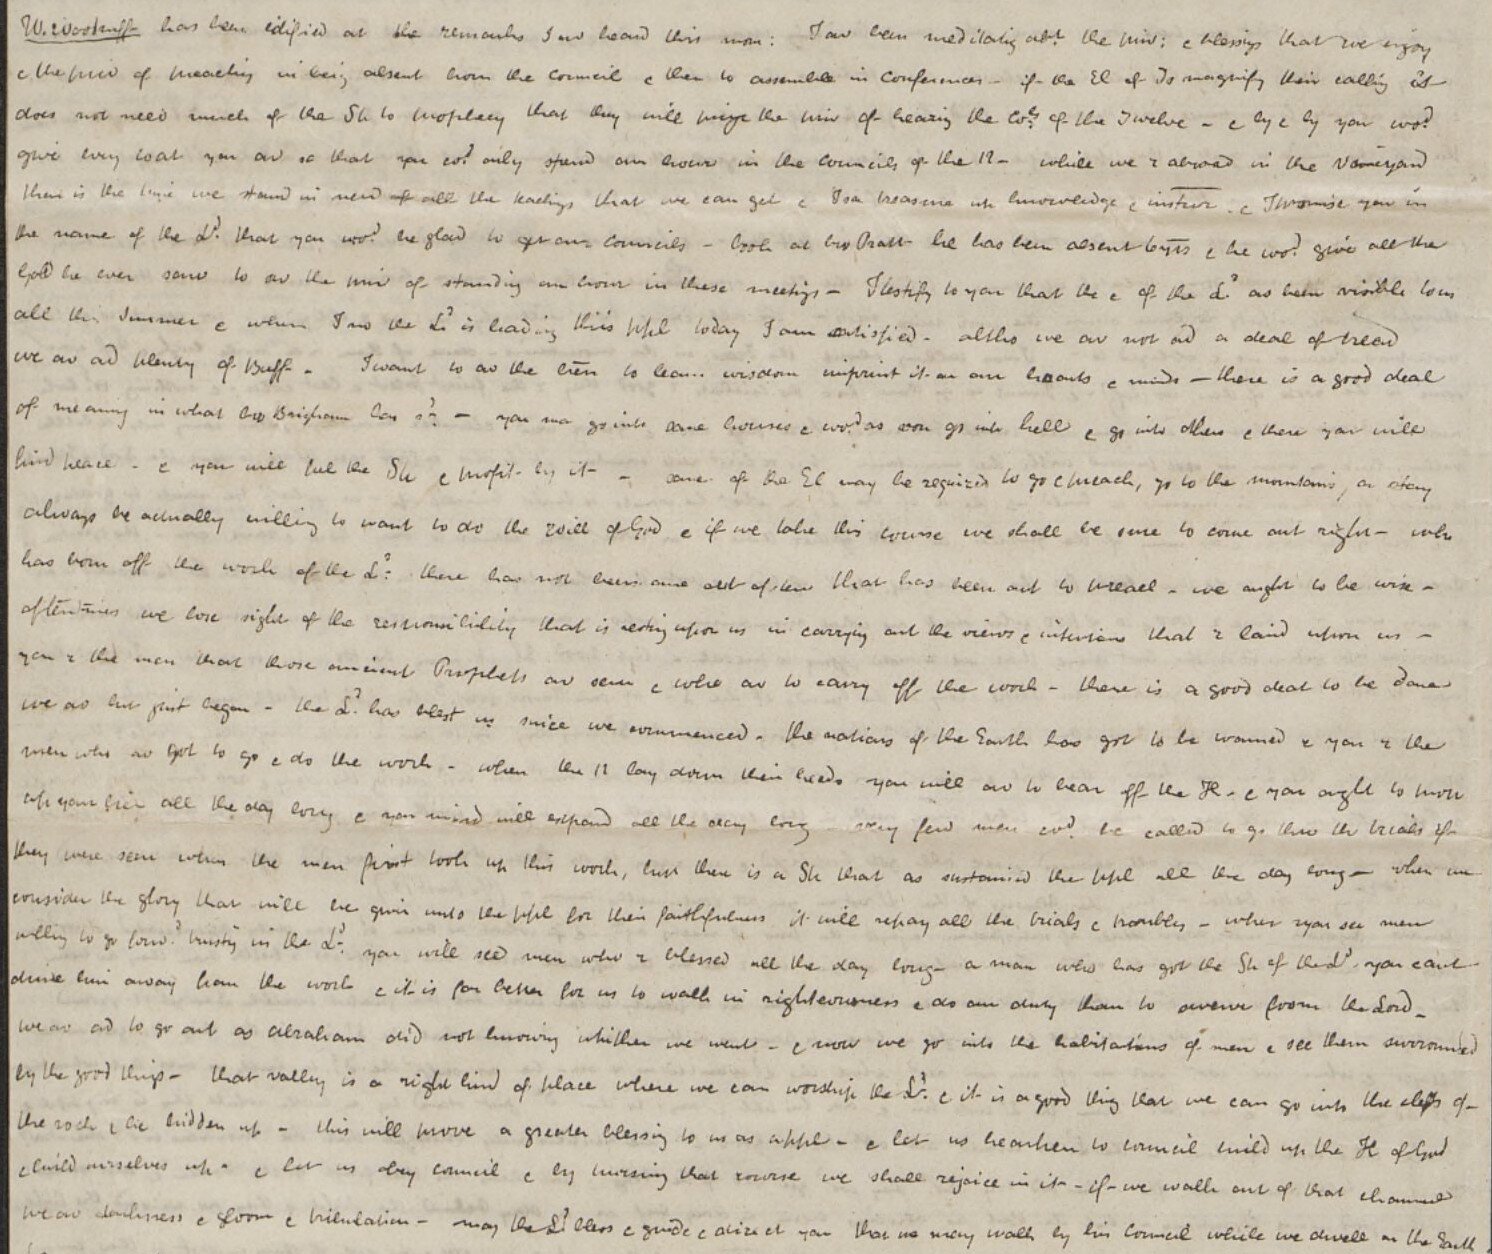 W. Woodruff has been edified at the remarks I av heard this morn: I av been meditatig abt. the priv: & blessigs that we enjoy
& the priv of preachig in being absent from the council & then to assemble in conferences – if the El of Is magnify their callig it
does not need much of the Sh to prophecy that they will prize the priv of hearing the cols. of the Twelve – & by & by you wod.
give evry coat you av so that you cod. only spend an hour in the councils of the 12 – while we r abroad in the Vineyard
then is the time we stand in need of all the teachigs that we can get & I sa treasure up knowledge & instrur. & I promise you in
the name of the Ld. that you wod. be glad to get our councils – look at bro Pratt he has been absent 6 yrs & he wod. give all the
Gold he ever saw to av the priv of standing an hour in these meetigs – I testify to you that the & of the Ld. as been visible to us
all this Summer & when I no the Ld. is leading this ppl today I am satisfied – altho we av not ad a deal of bread
we av ad plenty of Buff. – I want to av the bren to learn wisdom imprint it on our hearts & minds – there is a good deal
of meaning in what bro Brigham has sd. – you ma go into some houses & wod. as soon go into hell & go into others & there you will
find peace – & you will feel the Sh & profit by it – some of the El may be required to go & preach, go to the mountains, or stay
always be actually willing to want to do the will of God & if we take this course we shall be sure to come out right – who
has born off the work of the Ld. there has not been one out of ten that has been out to preach – we ought to be wise –
oftentimes we lose sight of the responsibility that is resting upon us in carrying out the views & intentions that r laid upon us –
you r the men that those ancient Prophets av seen & who av to carry off the work – there is a good deal to be done
we av but just began – the Ld. has blest us since we commenced – the nations of the Earth has got to be warned & you r the
men who av got to go & do the work – when the 12 lay down their heads you will av to bear off the K – & you ought to
up your all the day long & your mind will expand all the day long – very few men cod. be called to go thro the trials if
they were seen when the men first took up this work, but there is a Sh that as sustained the ppl all the day long – when we
consider the glory that will be given unto the ppl for their faithfulness it will repay all the trials & troubles – when you see men
willing to go forwd. trustig in the Ld. you will see men who r blessed all the day long – a man who has got the Sh of the Ld. you cant
drive him away from the work & it is far better for us to walk in righteousness & do our duty than to swerve from the Lord –
we av ad to go out as Abraham did not knowing whither we went – & now we go into the habitations of men & see them surrounded
by the good things – that valley is a right kind of place where we can worship the Ld. & it is a good thig that we can go into the clefts of
the rock & be hidden up – this will prove a greater blessing to us as a ppl – & let us hearken to council build up the K of God
& build ourselves up – & let us obey council & by pursuing that course we shall rejoice in it – if we walk out of that channel
we av darkness & gloom & tribulation – may the Ld. bless & guide & direct you that we may walk by his council while we dwell on the Earth